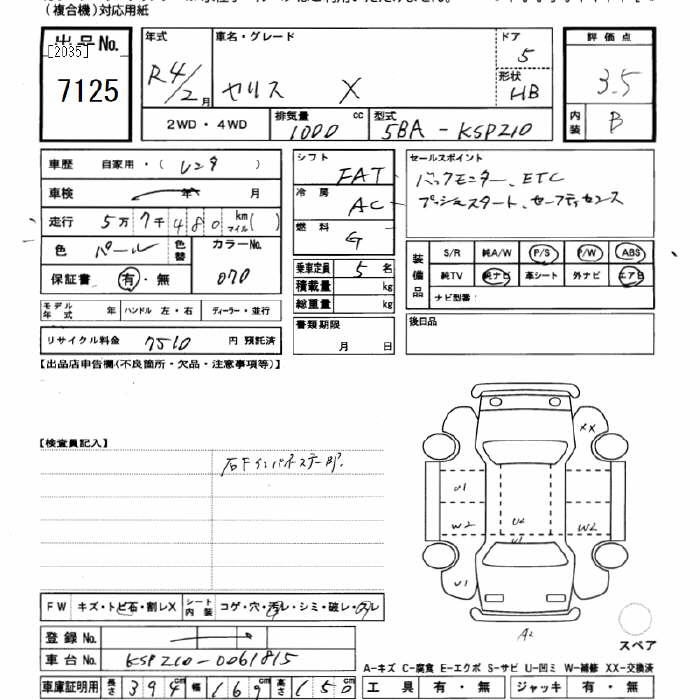 (複合機)対応用紙
出品No.
[2035]
7125
年式
R4/2月
車名・グレード
ヤリス X
ドア
5
形状
HB
評価点
3.5
内装
B
2WD・4WD
排気量
1000
cc
型式
5BA-KSP210
車歴 自家用・(レンタ)
車検 年 月
走行 5万7千480km マイル( )
色 パール 色替
カラーNo.
070
保証書 有・無
モデル年式 年 ハンドル 左・右 ディーラー・並行
リサイクル料金 7510 円 預託済
シフト
FAT
冷房
AC
燃料
G
乗車定員 5 名
積載量 kg
総重量 kg
書類期限
月 日
セールスポイント
バックモニター、ETC
プッシュスタート、セーフティセンス
装備品
S/R 純A/W P/S P/W ABS
純TV 純ナビ 革シート 外ナビ エアB
ナビ型番:
後日品
【出品店申告欄(不良箇所・欠品・注意事項等)】
【検査員記入】
右Fインパネステー部.
XX
U1
W2
U2
U1
W2
U1
A2
スペア
FW キズ・トビ石・割レX シート内装 コゲ・穴・汚レ・シミ・破レ・スレ
登録No.
車台No. KSP210-0061815
車庫証明用 長さ 394cm 幅 169cm 高さ 150
A-キズ C-腐食 E-エクボ S-サビ U-凹ミ W-補修 XX-交換済
工具 有・無 ジャッキ 有・無